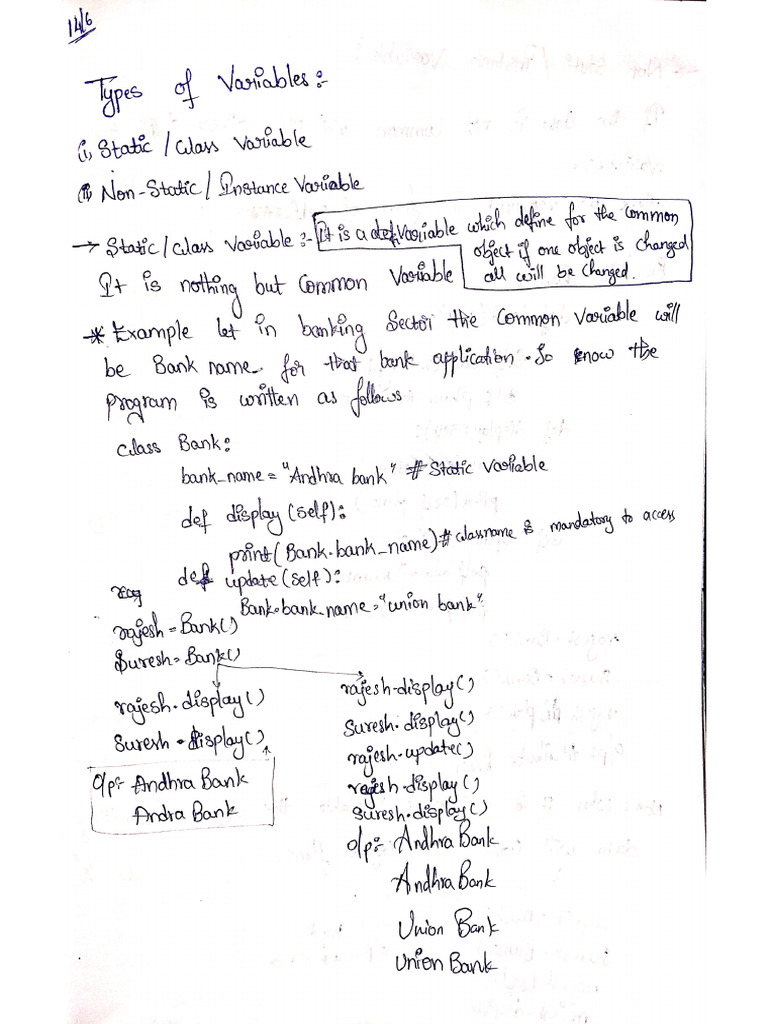 14/6
Types of Variables:-
(i) Static / Class Variable
(ii) Non-Static / Instance Variable
→ Static / Class Variable :- It is a variable which define for the common
object if one object is changed
all will be changed.
It is nothing but Common Variable
* Example let in banking Sector the Common Variable will
be Bank name for that bank application. So know the
program is written as follows
Class Bank:
bank_name = "Andhra bank" # Static Variable
def display (self):
print(Bank.bank_name) # classname is mandatory to access
def update (self):
Bank.bank_name = "union bank"
rajesh = Bank()
Suresh = Bank()
rajesh.display()
Suresh.display()
O/p:- Andhra Bank
Andra Bank
rajesh.display()
Suresh.display()
rajesh.update()
rajesh.display()
Suresh.display()
O/p:- Andhra Bank
Andhra Bank
Union Bank
Union Bank